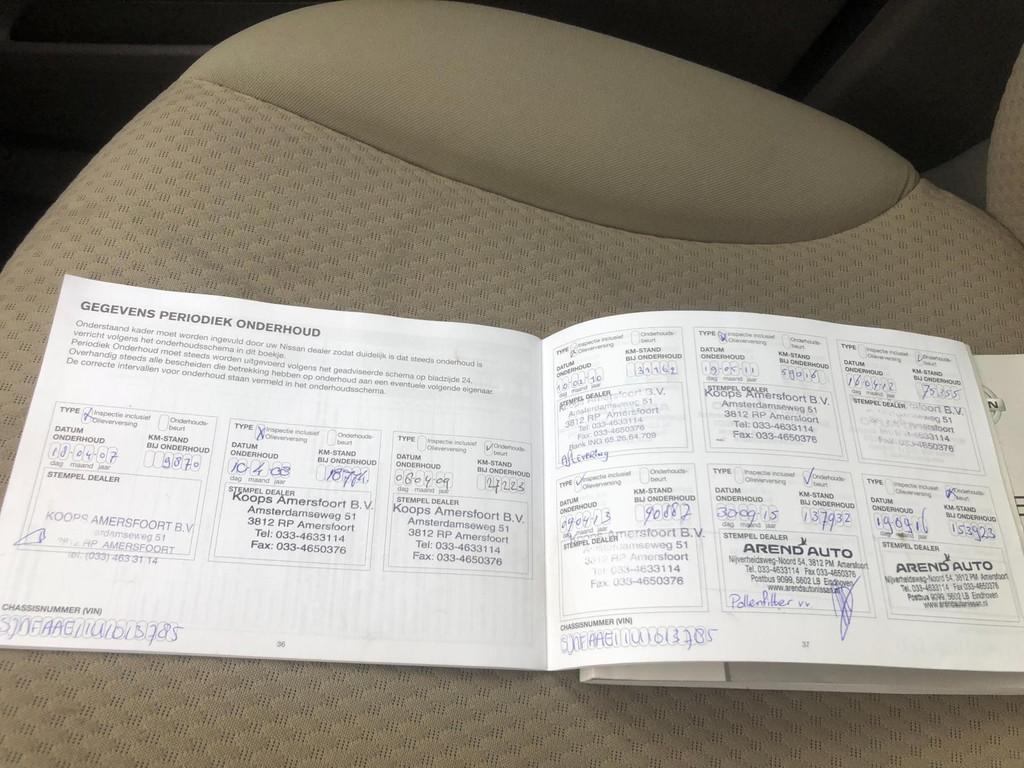 GEGEVENS PERIODIEK ONDERHOUD
Onderstaand kader moet worden ingevuld door uw Nissan dealer zodat duidelijk is dat steeds onderhoud is
verricht volgens het onderhoudsschema in dit boekje.
Periodiek Onderhoud moet steeds worden uitgevoerd volgens het geadviseerde schema op bladzijde 24.
Overhandig steeds alle bescheiden die betrekking hebben op onderhoud aan een eventuele volgende eigenaar.
De correcte intervallen voor onderhoud staan vermeld in het onderhoudsschema.
TYPE Inspectie inclusief Olieverversing Onderhouds-beurt
DATUM ONDERHOUD KM-STAND BIJ ONDERHOUD
180407 9870
dag maand jaar
STEMPEL DEALER
KOOPS AMERSFOORT B.V.
3812 RP AMERSFOORT
TYPE Inspectie inclusief Olieverversing Onderhouds-beurt
DATUM ONDERHOUD KM-STAND BIJ ONDERHOUD
dag maand jaar
STEMPEL DEALER
Koops Amersfoort B.V.
Amsterdamseweg 51
3812 RP Amersfoort
Tel: 033-4633114
Fax: 033-4650376
TYPE Inspectie inclusief Olieverversing Onderhouds-beurt
DATUM ONDERHOUD KM-STAND BIJ ONDERHOUD
080409 27223
dag maand jaar
STEMPEL DEALER
Koops Amersfoort B.V.
Amsterdamseweg 51
3812 RP Amersfoort
Tel: 033-4633114
Fax: 033-4650376
CHASSISNUMMER (VIN)
36
TYPE Inspectie inclusief Olieverversing Onderhouds-beurt
DATUM ONDERHOUD KM-STAND BIJ ONDERHOUD
dag maand jaar
STEMPEL DEALER
Amersfoort B.V.
Amsterdamseweg 51
3812 RP Amersfoort
Tel: 033-4633114
Fax: 033-4650376
Bank ING 65.26.64.709
Aflevering
TYPE Inspectie inclusief Olieverversing Onderhouds-beurt
DATUM ONDERHOUD KM-STAND BIJ ONDERHOUD
190511 59016
dag maand jaar
STEMPEL DEALER
Koops Amersfoort B.V.
Amsterdamseweg 51
3812 RP Amersfoort
Tel: 033-4633114
Fax: 033-4650376
TYPE Inspectie inclusief Olieverversing Onderhouds-beurt
DATUM ONDERHOUD KM-STAND BIJ ONDERHOUD
160412 75355
dag maand jaar
STEMPEL DEALER
TYPE Inspectie inclusief Olieverversing Onderhouds-beurt
DATUM ONDERHOUD KM-STAND BIJ ONDERHOUD
090413 90887
dag maand jaar
STEMPEL DEALER
Amersfoort B.V.
3812 RP Amersfoort
Tel: 033-4633114
Fax: 033-4650376
TYPE Inspectie inclusief Olieverversing Onderhouds-beurt
DATUM ONDERHOUD KM-STAND BIJ ONDERHOUD
300915 137932
dag maand jaar
STEMPEL DEALER
AREND AUTO
Nijverheidsweg-Noord 54, 3812 PM Amersfoort
Tel. 033-4633114 Fax 033-4650376
Postbus 9099, 5602 LB Eindhoven
www.arendautonissan.nl
Pollenfilter vv
TYPE Inspectie inclusief Olieverversing Onderhouds-beurt
DATUM ONDERHOUD KM-STAND BIJ ONDERHOUD
190916 153923
dag maand jaar
STEMPEL DEALER
AREND AUTO
Nijverheidsweg-Noord 54, 3812 PM Amersfoort
Tel. 033-4633114 Fax 033-4650376
Postbus 9099, 5602 LB Eindhoven
www.arendautonissan.nl
CHASSISNUMMER (VIN)
37